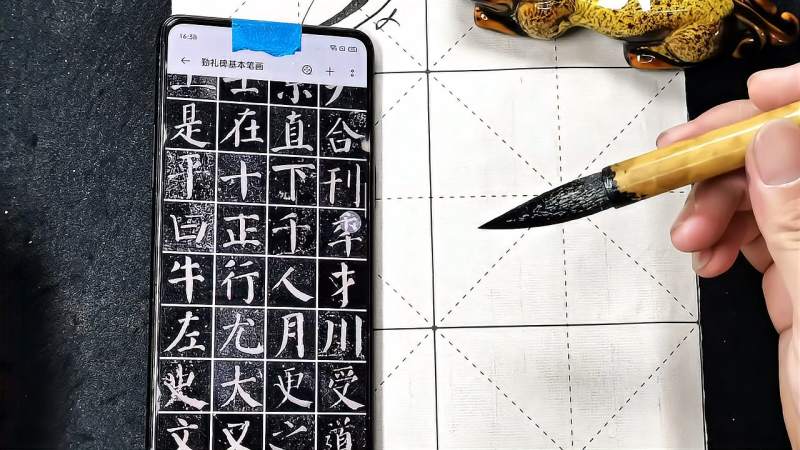 16:38
勤礼碑基本笔画
是在直合
平十下刊
曰正千季
牛行人才
左尤月川
史大更受
文又之道